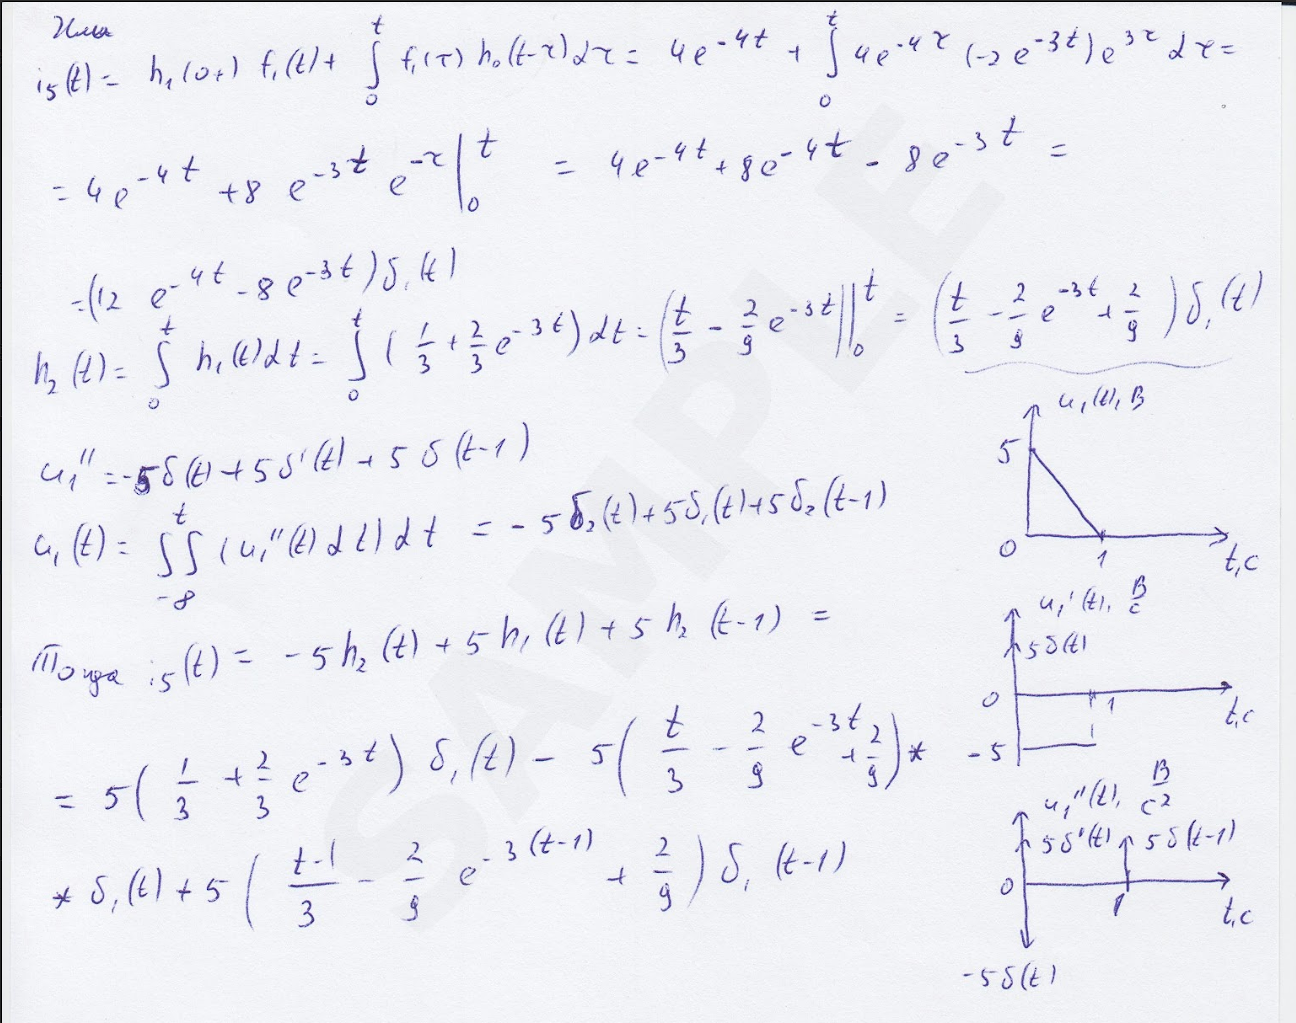 Или
i₅(t) = h₁(0+) f₁(t) + ∫₀ᵗ f₁(τ) h₀(t-τ) dτ = 4e^{-4t} + ∫₀ᵗ 4e^{-4τ} (-2e^{-3t}) e^{3τ} dτ =
= 4e^{-4t} + 8 e^{-3t} e^{-τ} |₀ᵗ = 4e^{-4t} + 8e^{-4t} - 8e^{-3t} =
= (12 e^{-4t} - 8e^{-3t}) δ₁(t)
h₂(t) = ∫₀ᵗ h₁(t) dt = ∫₀ᵗ (1/3 + 2/3 e^{-3t}) dt = (t/3 - 2/9 e^{-3t}) |₀ᵗ = (t/3 - 2/9 e^{-3t} + 2/9) δ₁(t)
u₁'' = -5δ(t) + 5δ'(t) + 5δ(t-1)
u₁(t) = ∫∫_{-8}^{t} (u₁''(t) dt) dt = -5δ₂(t) + 5δ₁(t) + 5δ₂(t-1)
Тогда i₅(t) = -5h₂(t) + 5h₁(t) + 5h₂(t-1) =
= 5(1/3 + 2/3 e^{-3t}) δ₁(t) - 5(t/3 - 2/9 e^{-3t} + 2/9) *
* δ₁(t) + 5(t-1/3 - 2/9 e^{-3(t-1)} + 2/9) δ₁(t-1)
u₁(t), В
5
0
1
t, с
u₁'(t), В/с
5δ(t)
0
1
t, с
-5
u₁''(t), В/с²
5δ'(t)
5δ(t-1)
0
1
t, с
-5δ(t)
SAMPLE